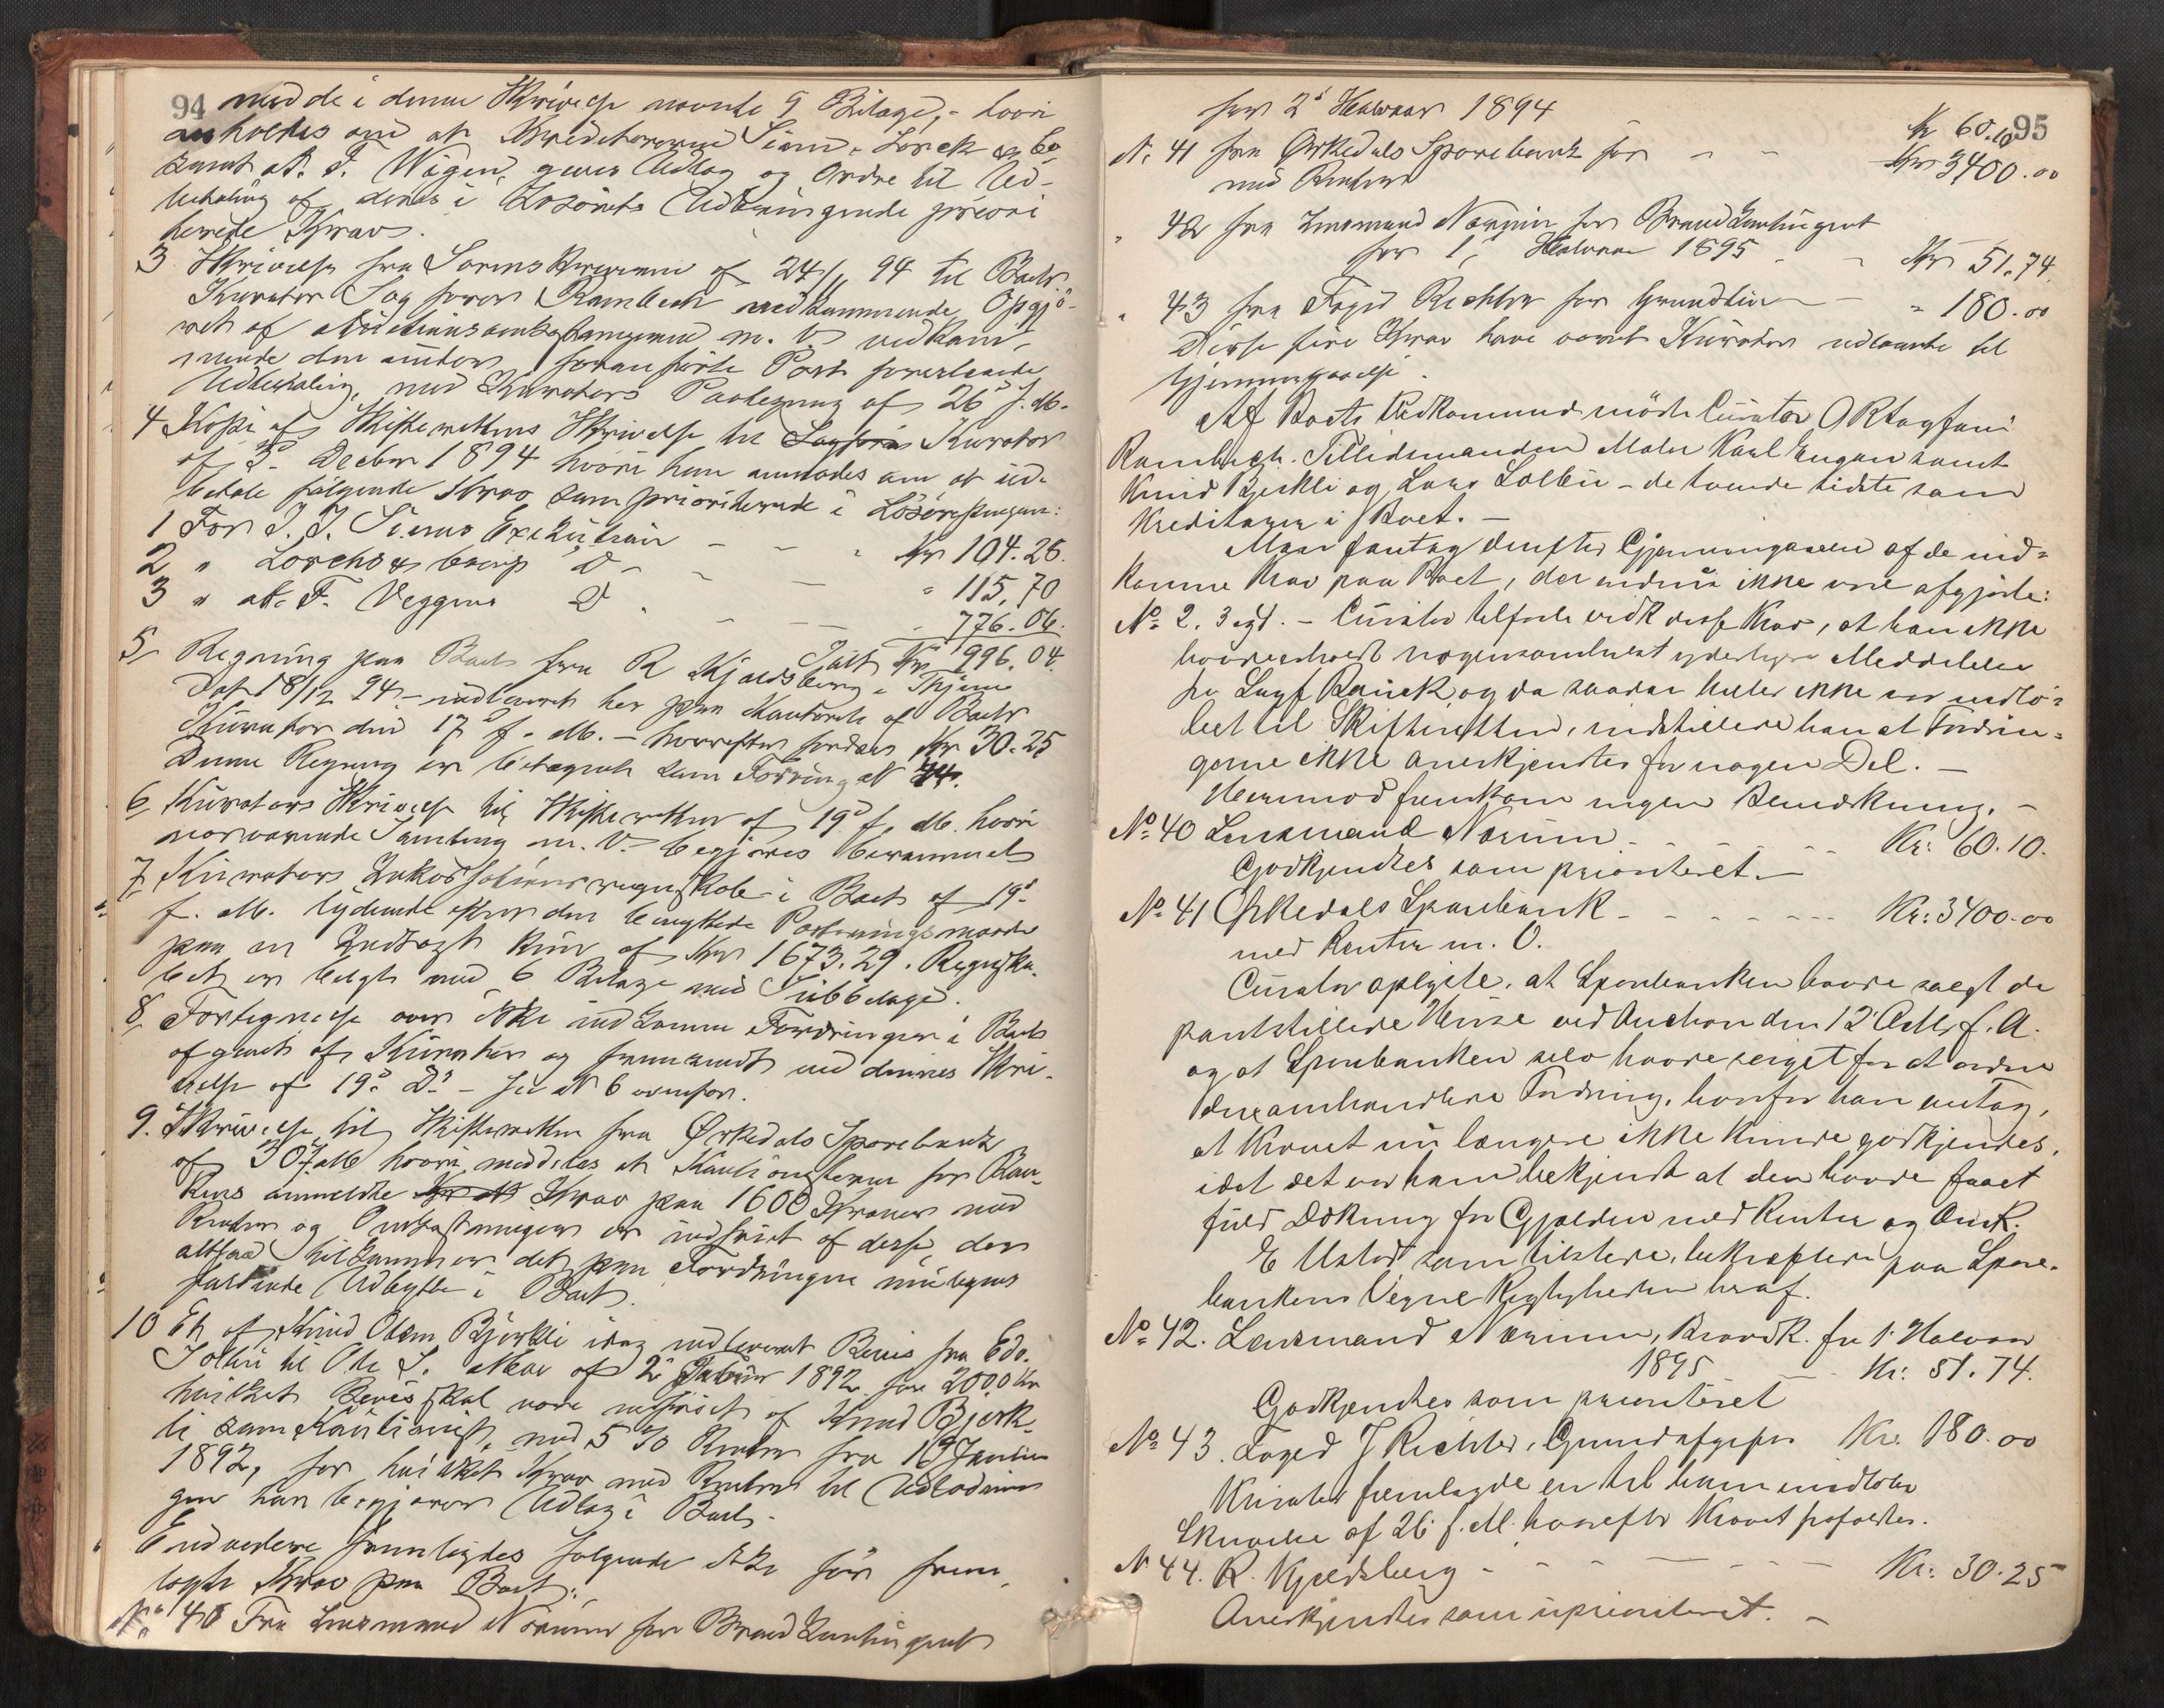 94
med de i denne Skrivelse nævnte 9 Bilage, - hvori
anholdes om at Kreditorerne Siem, Lorck & Co
samt A. F. Wigen, gives Udlæg og Ordre til Ud-
betaling af deres i Løsørets Udbringende priori
terede Krav.
3 Skrivelse fra Sorenskriveren af 24/11 94 til Boets
Kurator Sagfører Rambech vedkommende Opgjø-
ret af Auktionsomkostningerne m. V. vedkom-
mende den under foranførte Post
Udbetaling, med Kurators Paategning af 26' f. M.
4 Kopi af Skifterettens Skrivelse til Kurator
af 3' Decbr 1894 hvori han anmodes om at ud-
betale følgende Krav som prioriterede i Løsørepengene:
1 For J. J. Siems Exekution - - - Kr 104.28
2 " Lorchs & Comp D - - - " 115,70
3 " A. F. Veggens D - - - 776.06.
Ialt Kr 996.04.
5 Regning paa Boet fra R Kjeldsberg i Thjem
Dat 18/12 94 - indleveret her paa Kontoret af Boets
Kurator den 17' f. M. - hvorefter fordres Kr 30.25
Denne Regning er betegnet som Fordring N 44.
6 Kurators Skrivelse til Skifteretten af 19' f. M. hvori
nærværende Samling m. V. begjæres berammet
7 Kurators Inkassationsregnskab i Boet af 19'
f. M. lydende efter den benyttede Posteringsmaade
paa en Indtægt kun af Kr 1673.29. Regnska-
bet er belagt med 6 Bilage med Subbilage.
8 Fortegnelse over ikke indkomne Fordringer i Boet
afgivet af Kurator og fremsendt ved dennes Skri-
velse af 19' D' - se N 6 ovenfor.
9. Skrivelse til Skifteretten fra Ørkedals Sparebank
af 30' f. M hvori meddeles at Kautionisterne for Ban-
kens anmeldte Krav paa 1600 Kroner med
Renter og Omkostninger er indfriet af disse, der
altsaa tilkommer det paa Fordringen muligens
faldende Udbytte i Boet.
10 Et af Knud Olsen Bjørkli idag indleveret Bevis fra Edv.
Solbu til Ole L. Moe af 2' 1892 for 2000 Kr
hvilket Bevis skal være indfriet af Knud Bjørk-
li som Kautionist, med 5 % Renter fra 16' Januar
1892, for hvilket Krav med Renter til Udlodnin
gen han begjærer Udlæg i Boet.
Endvidere fremlagdes følgende ikke før frem-
lagte Krav paa Boet:
No 40 Fra Lensmand Norum for Brandkontingent
95
for 2' Halvaar 1894
Kr 60.10
N. 41 fra Ørkedals Sparebank for - - Kr 3400.00
med Renter
" 42 fra Lensmand Norum for Brandkontingent
for 1' Halvaar 1895 - - Kr 51.74.
" 43 fra Foged Richter for Grundleie - - " 180.00
Disse fire Krav have været Kurator udlaante til
Gjennemgaaelse.
Af Boets Vedkommende mødte Curator O R Sagfører
Rambech. Tillidsmanden Maler Karl Engan samt
Knud Bjerkli og Lars Solbu - de tvende sidste som
Kreditorer i Boet. -
Man foretog derefter Gjennemgaaelse af de ind-
komne Krav paa Boet, der endnu ikke vare afgjorte:
No 2. 3 og 4. - Curator tilførte vedk disse Krav, at han ikke
havde erholdt nogensomhelst yderligere Meddelelse
fra Sagf Bauck, og da saadan heller ikke var indlø-
bet til Skifteretten, indstillede han at Fordrin-
gerne ikke anerkjendtes for nogen Del. -
Herimod fremkom ingen Bemærkning. -
No 40 Lensmand Norum - - - - - Kr: 60.10.
Godkjendtes som prioriteret. -
No 41 Ørkedals Sparebank - - - - - Kr: 3400.00
med Renter m. O.
Curator oplyste, at Sparebanken havde solgt de
pantstillede Huse ved Auction den 12' Octbr f. A.
og at Sparebanken selv havde sørget for at ordne
den omhandlede Fordring, hvorfor han antog,
at Kravet nu længere ikke kunde godkjendes,
idet det var ham bekjendt at den havde faaet
fuld Dækning for Gjælden med Renter og Omk.
E Ustad, som tilstede, bekræftede paa Spare-
bankens Vegne Rigtigheden heraf.
No 42. Lensmand Norum, Brandk. for 1' Halvaar
1895 - - Kr: 51.74.
Godkjendtes som prioriteret
No 43. Foged J Richter, Grundafgift Kr. 180.00
Kurator fremlagde en til ham indløben
Skrivelse af 26' f. M. hvorefter Kravet frafaldtes.
N 44. R. Kjeldsberg - - - - - Kr: 30.25
Anerkjendtes som uprioriteret. -